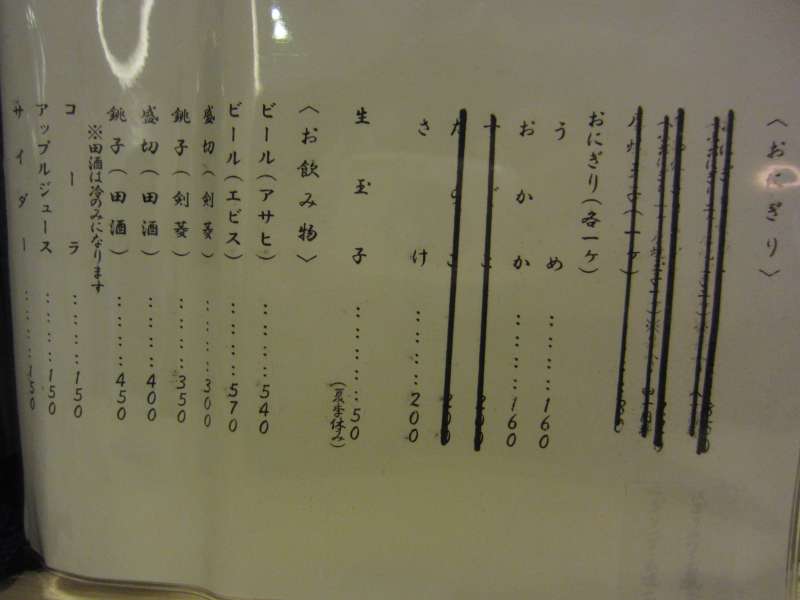 〈おにぎり〉
おにぎり(各一ヶ)
うめ ‥‥‥‥‥160
おかか ‥‥‥‥‥160
すじこ
たらこ
さけ ‥‥‥‥‥200
生玉子 ‥‥‥‥‥50
(夏季休み)
〈お飲み物〉
ビール(アサヒ) ‥‥‥‥‥540
ビール(エビス) ‥‥‥‥‥570
盛切(剣菱) ‥‥‥‥‥300
銚子(剣菱) ‥‥‥‥‥350
盛切(田酒) ‥‥‥‥‥400
銚子(田酒) ‥‥‥‥‥450
※田酒は冷のみになります
コーラ ‥‥‥‥‥150
アップルジュース ‥‥‥‥‥150
サイダー ‥‥‥‥‥150